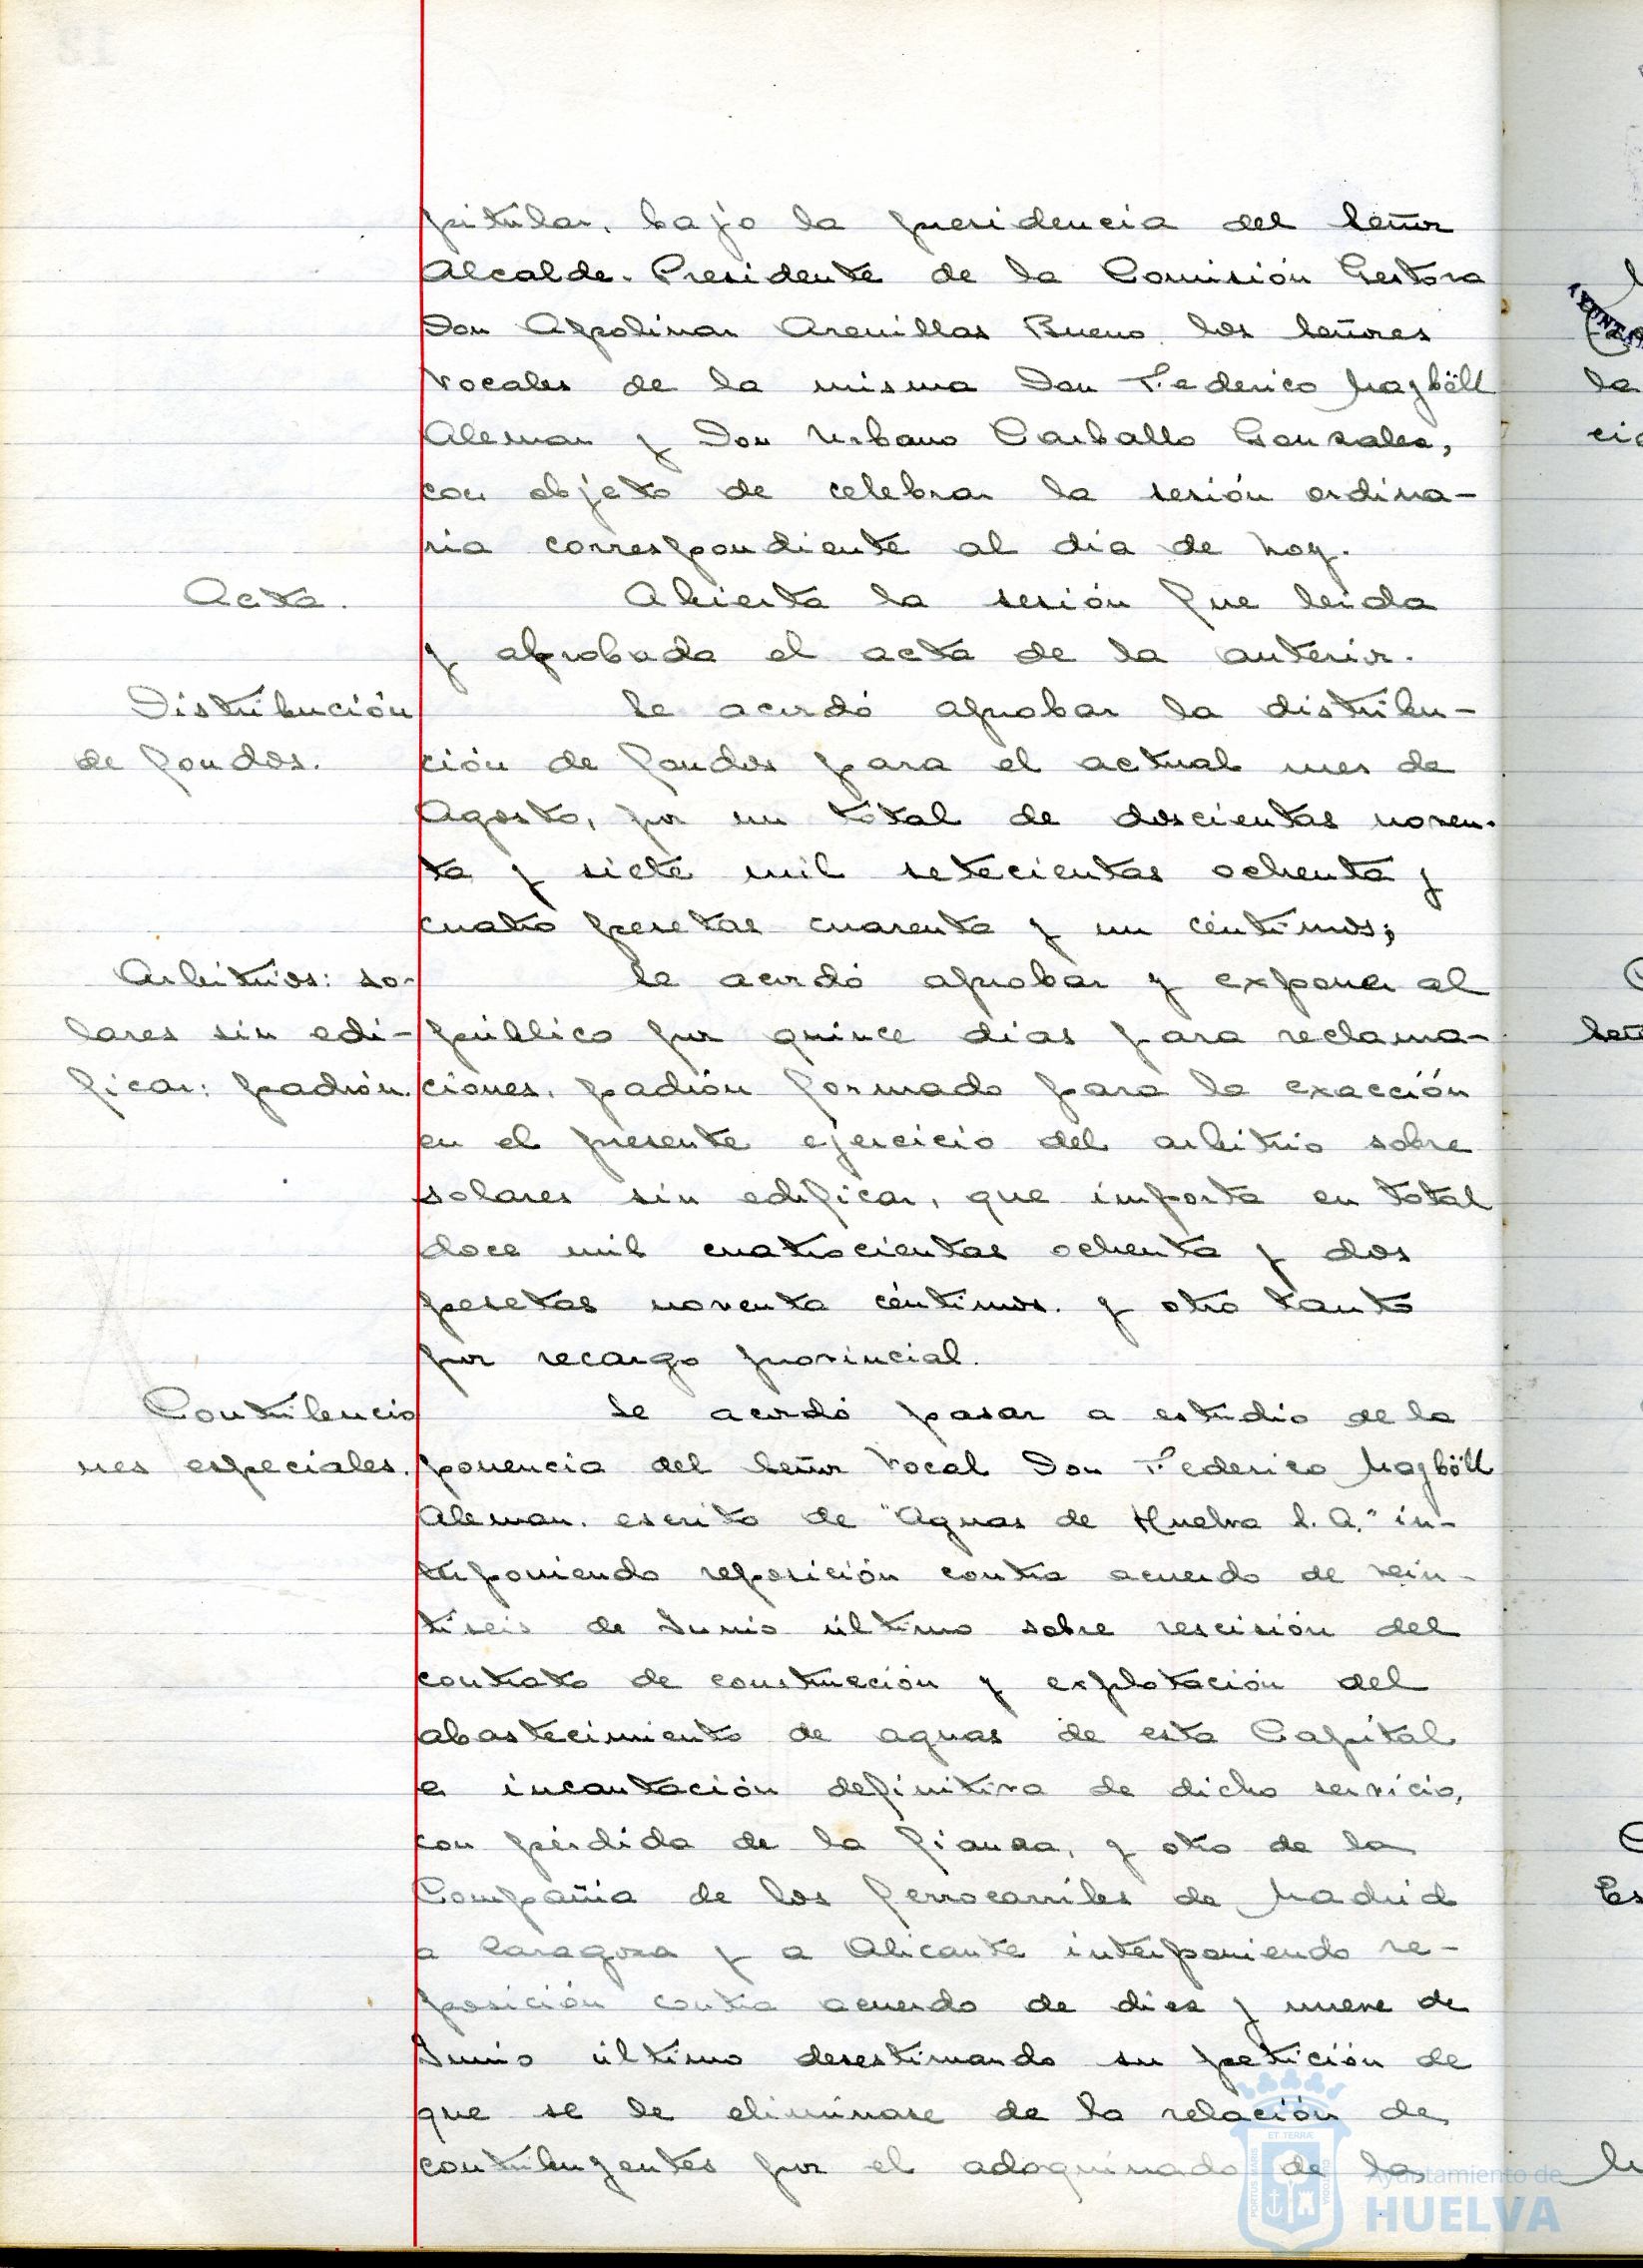 pitular, bajo la presidencia del Señor
Alcalde-Presidente de la Comisión Gestora
Don Apolinar Arenillas Bueno, los Señores
Vocales de la misma Don Federico Mayböll
Aleman y Don Urbano Carballo Gonzalez,
con objeto de celebrar la sesión ordina-
ria correspondiente al día de hoy.
Acta.
Abierta la sesión fue leida
y aprobada el acta de la anterior.
Distribución
de fondos.
Se acordó aprobar la distribu-
ción de fondos para el actual mes de
Agosto, por un total de doscientas noven-
ta y siete mil setecientas ochenta y
cuatro pesetas cuarenta y un céntimos;
Arbitrios: so-
lares sin edi-
ficar: padrón.
Se acordó aprobar y exponer al
público por quince días para reclama-
ciones, padrón formado para la exacción
en el presente ejercicio del arbitrio sobre
solares sin edificar, que importa en total
doce mil cuatrocientas ochenta y dos
pesetas noventa céntimos. y otro tanto
por recargo provincial.
Contribucio
nes especiales.
Se acordó pasar a estudio de la
ponencia del Señor Vocal Don Federico Mayböll
Aleman, escrito de "Aguas de Huelva S.A." in-
terponiendo reposición contra acuerdo de vein-
tiseis de Junio último sobre rescisión del
contrato de construcción y explotación del
abastecimiento de aguas de esta Capital
e incautación definitiva de dicho servicio,
con pérdida de la fianza, y otro de la
Compañía de los ferrocarriles de Madrid
a Zaragoza y a Alicante interponiendo re-
posición contra acuerdo de diez y nueve de
Junio último desestimando su petición de
que se le eliminase de la relación de
contribuyentes por el adoquinado de la
Ayuntamiento de
HUELVA